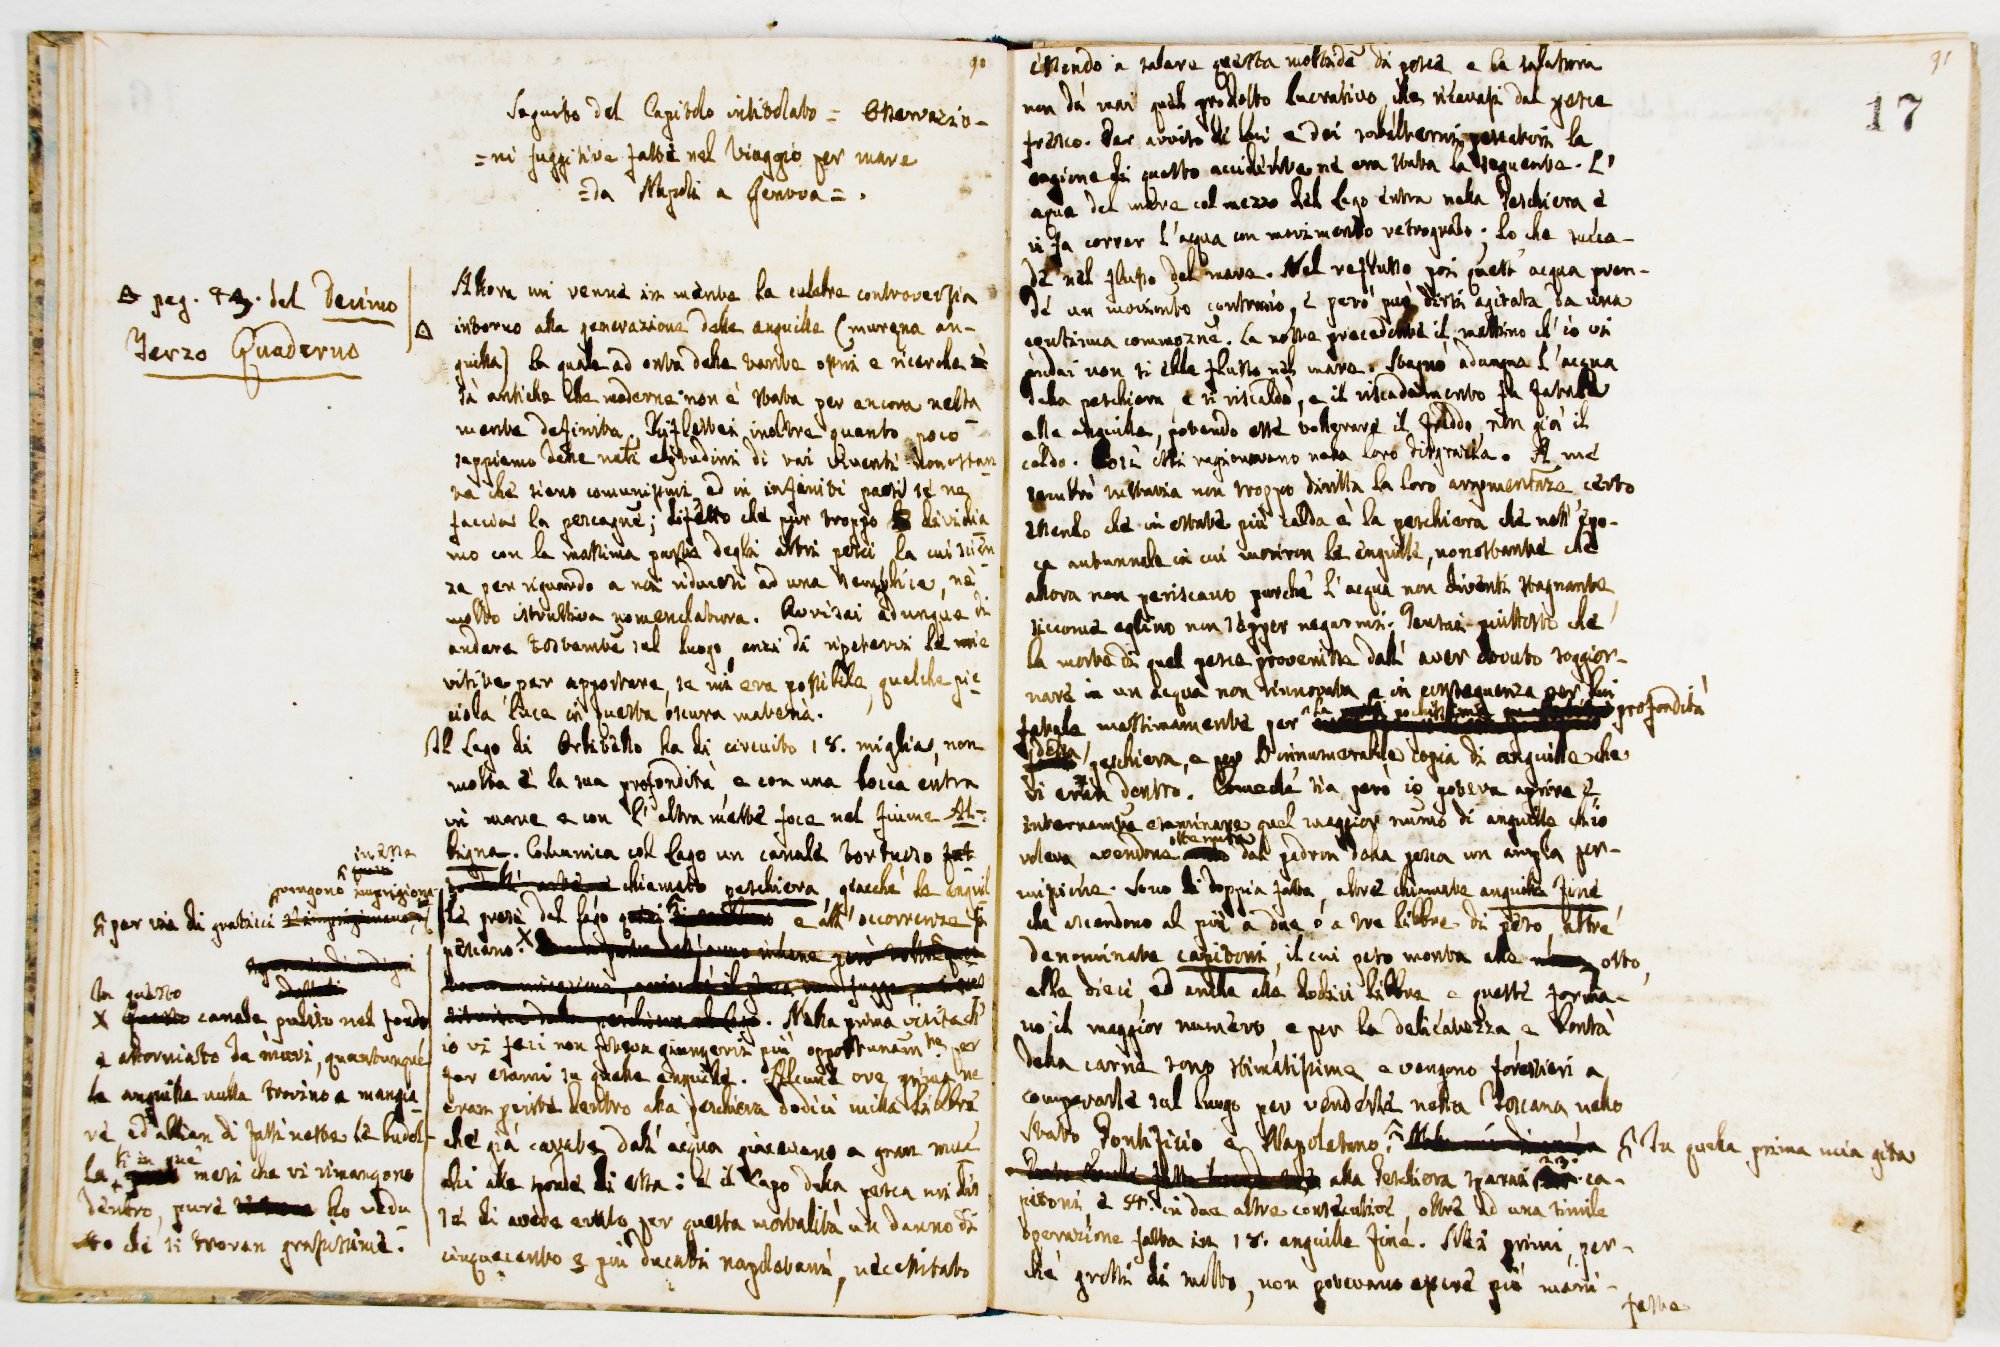 90
Seguito del Capitolo intitolato = Osservazio-
=ni fuggitive fatte nel Viaggio per mare
=da Napoli a Genova=.
pag. 43. del Decimo
Terzo Quaderno
Allora mi venne in mente la celebre controversia
intorno alla generazione delle anguille (murena an-
guilla) la quale ad onta delle tante opini e ricerche
sì antiche che moderne non è stata per ancora nella-
mente definita. Riflettei inoltre quanto poco
sappiamo delle neti abitudini di vai viventi nonostan
te che sieno comunissimi, ed in infiniti paesi se ne
faccia la pescagne; difetto che pur troppo dividia
mo con la massima parte degli altri pesci la cui scien
za per riguardo a noi riducesi ad una semplice, nè
molto istruttiva nomenclatura. Avvisai adunque di
andare tostamente sul luogo, anzi di ripetervi le mie
visite per apportare, se mi era possibile, qualche pic
ciola luce in questa oscura materia.
Il Lago di Orbitello ha di circuito 18. miglia, non
molta è la sua profondità, e con una bocca entra
in mare e con l'altra mette foce nel fiume Al-
bigna. Comunica col Lago un canale tortuoso
chiamato peschiera, giacchè le anguil
le prese del lago e all'occorrenza si
pescano. X
. Nella prima visita ch'
io vi feci non poteva giungervi più opportunam.te per
far esami su quelle anguille. Alcune ore prima ne
eran perite dentro alla peschiera dodici mila libbre
che già cavate dall'acqua giacevano a gran muc
chi alle sponde di essa: e il Capo della pesca mi dis
se di avere avuto per questa mortalità un danno di
cinquecento e più ducati napoletani, necessitato
in essa
vengono imprigiona
per via di graticci
In questo
X canale pulito nel fondo
e attorniato da muri, quantunque
le anguille nulla trovino a mangia
re, ed abbian di fatti nette le budel-
la in que mesi che vi rimangono
dentro, pure ho vedu
to che si trovan grassissime.
91
17
essendo a salare questa moltitud.e di pesce e la salatura
non dà mai quel prodotto lucrativo, che ricavasi dal pesce
fresco. Per avviso di lui, e dei subalterni pescatori la
cagione di questo accidente ne era stata la seguente. L'
aqua del mare col mezzo del Lago entra nella Peschiera e
vi fa correr l'acqua con movimento retrogrado; lo che succe-
de nel flusso del mare. Nel reflusso poi quest'acqua pren-
de un movimento contrario, e però può dirsi agitata da una
continua commozne. La notte precedente il mattino ch'io vi
andai non si ebbe flusso nel mare. Stagnò adunque l'acqua
della peschiera e si riscaldò, e il riscaldamento fu fatale
alle anguille, potendo esse tollerare il freddo, non già il
caldo. Così essi ragionavano nella loro disgrazia. A me
sembrò tuttavia non troppo diritta la loro argomentaze, certo
essendo che in estate più calda è la peschiera che nell'epo-
ca autunnale in cui moriron le anguille, nonostante che
allora non periscano purchè l'acqua non diventi stagnante
siccome eglino non sepper negarmi. Pensai piuttosto che
la morte di quel pesce provenisse dall'aver dovuto soggior-
nare in un acqua non rinnovata e in conseguenza per lui
fatale massimamente per la pochissima profondità
della peschiera, e per l'innumerabile copia di anguille che
vi eran dentro. Comechè sia però io poteva aprire e
internam.te esaminare quel maggior num.o di anguille ch'io
voleva avendone ottenuta dal padron della pesca un ampla per-
missione. Sono di doppia fatta, altre chiamate anguille fine
che ascendono al più a due o a tre libbre di peso, altre
denominate capitoni, il cui peso monta alle otto,
alle dieci, ed anche alle dodici libbre e queste forma-
no il maggior numero, e per la delicatezza, e bontà
della carne sono stimatissime, e vengono forestieri a
comperarle sul luogo per venderle nella Toscana nello
Stato Pontificio e Napoletano.
In quella prima mia gita
alla Peschiera sparai 23. ca-
pitoni e 44. in due altre consecutive, oltre ad una simile
operazione fatta in 18. anguille fine. Nei primi, per-
chè grossi di molto, non potevano essere più mani-
feste